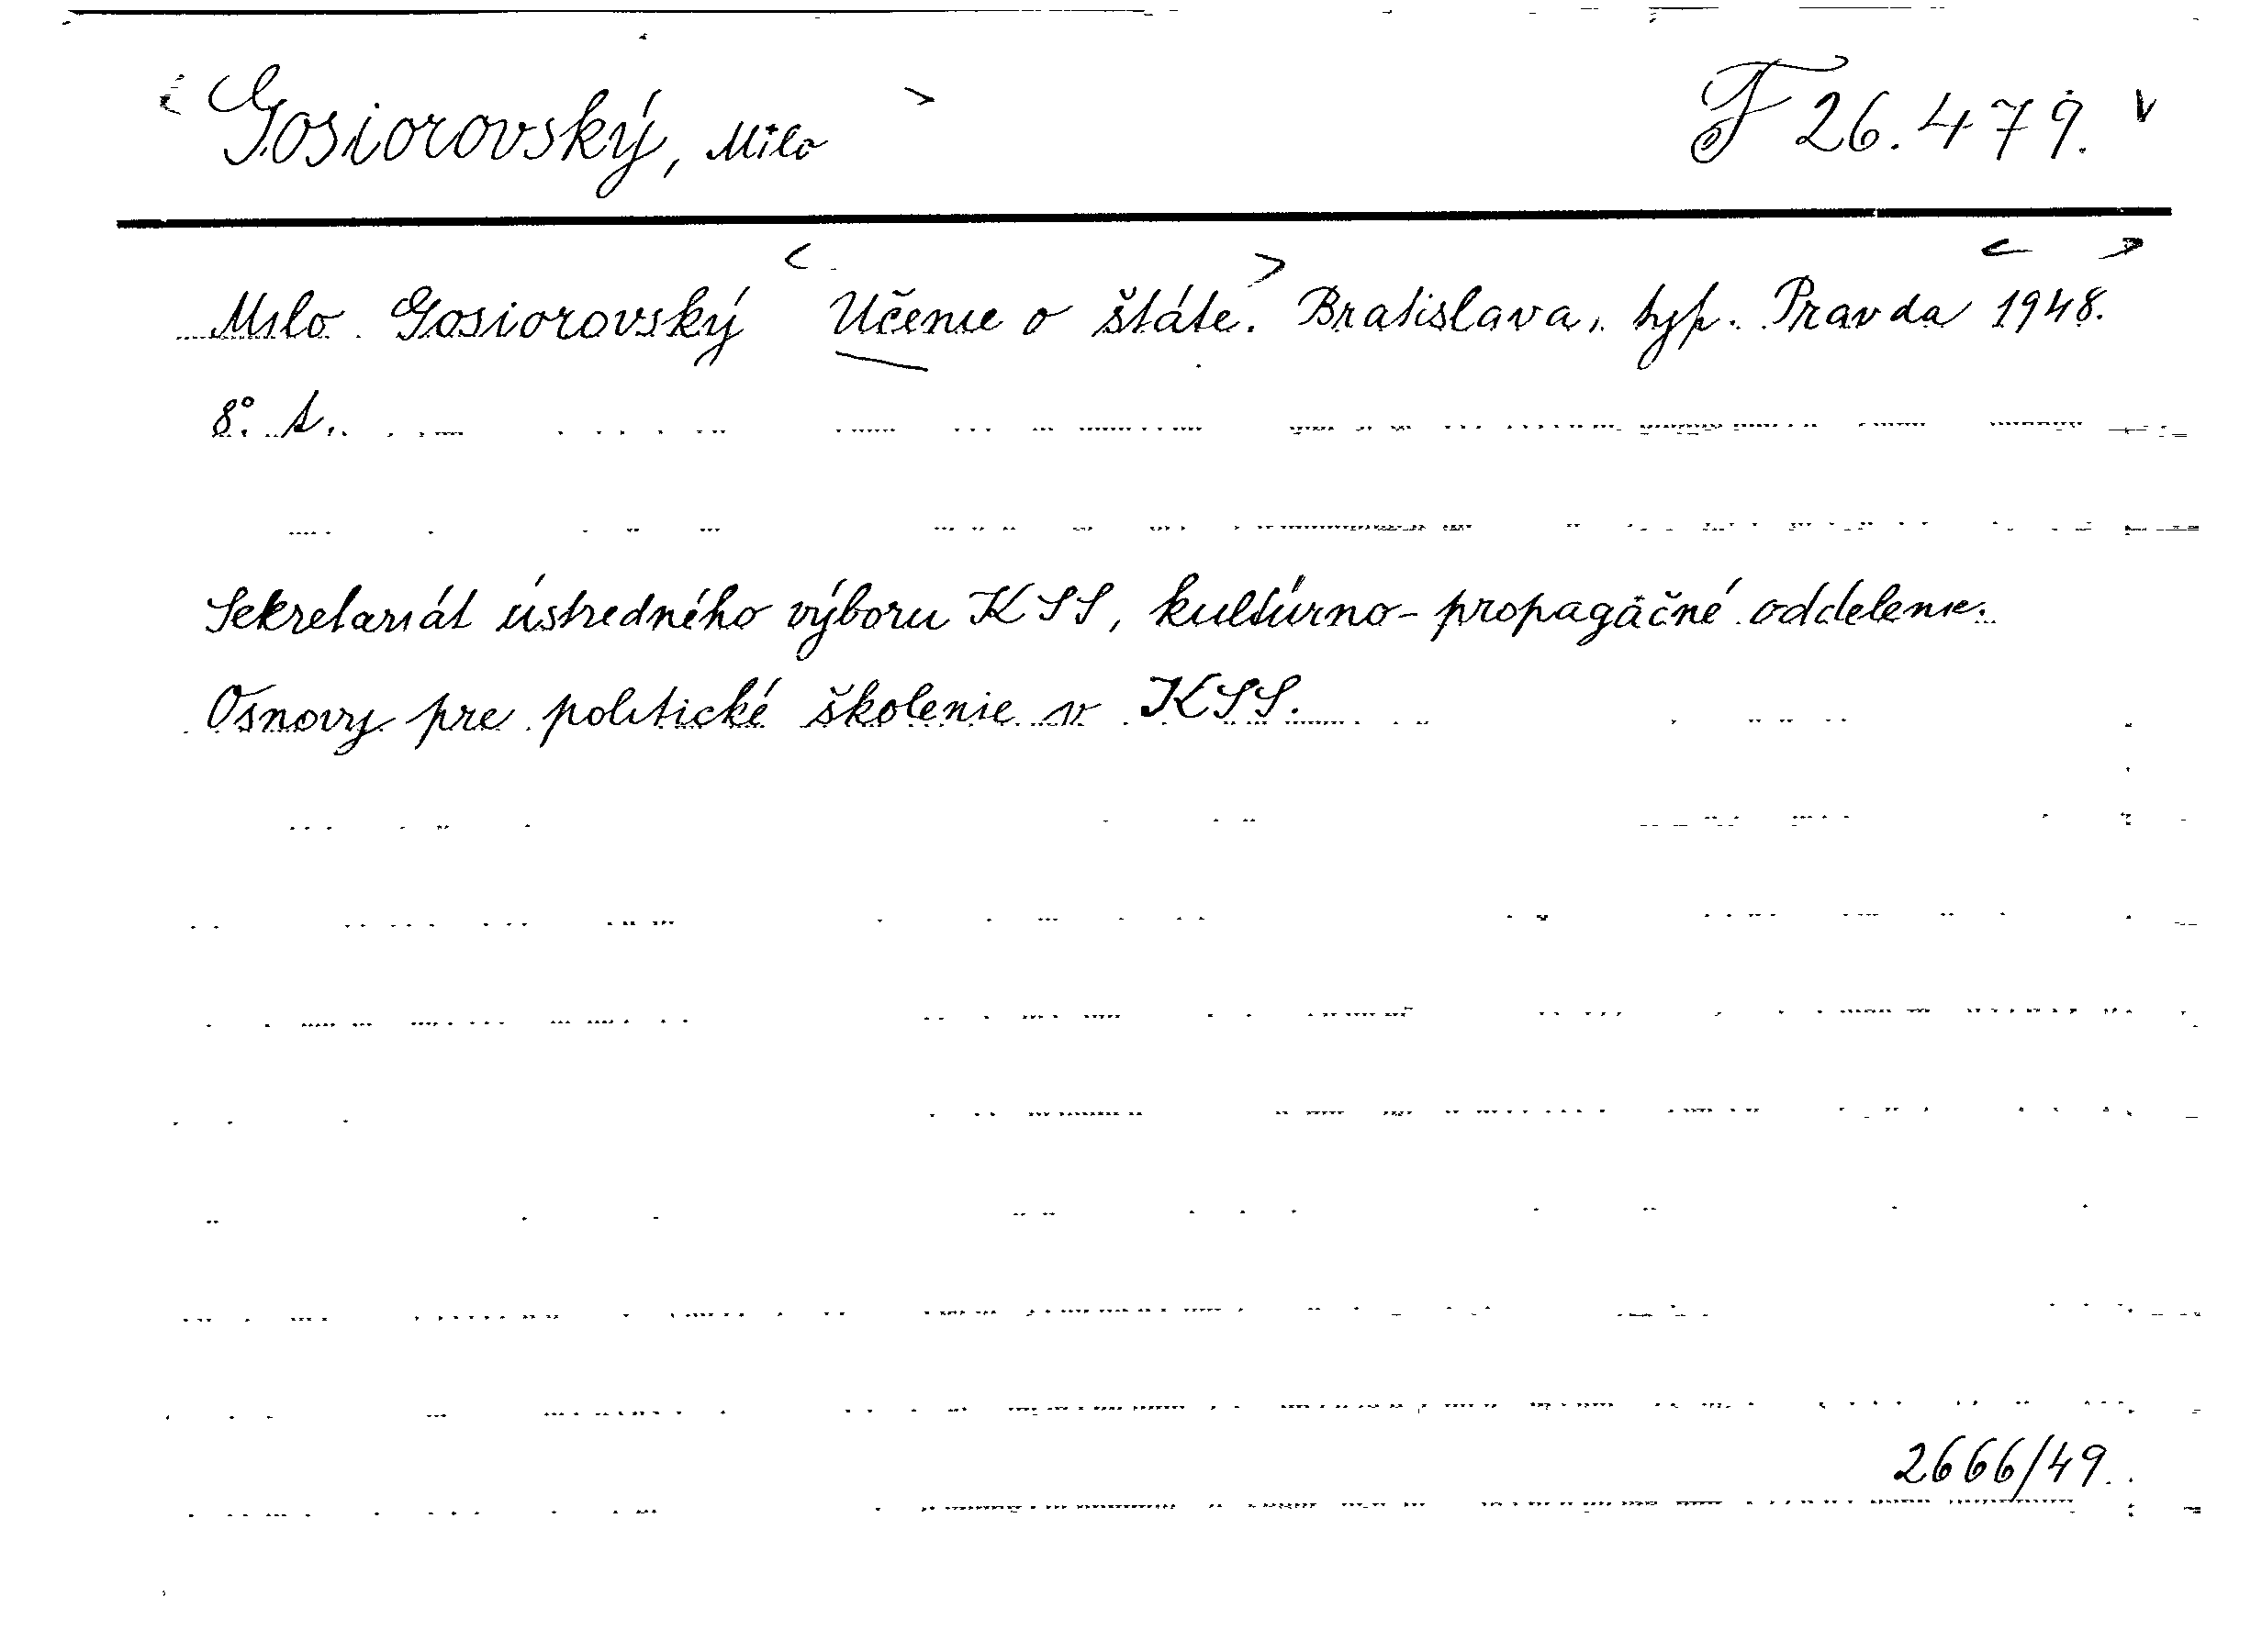 Gosiorovský, Milo F 26.479.
Milo Gosiorovský Učenie o štáte. Bratislava, typ. Pravda 1948.
8°. s.
Sekretariát ústredného výboru KSS, kultúrno-propagačné oddelenie.
Osnovy pre politické školenie v KSS.
2666/49.